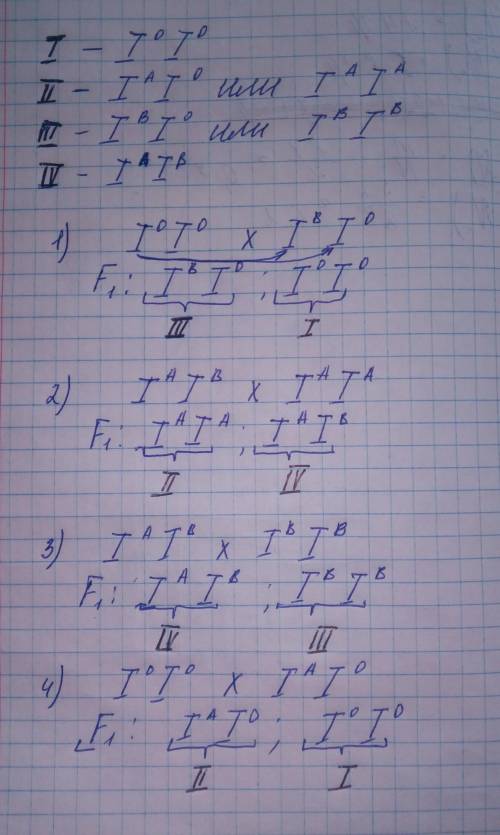 I - I⁰ I⁰
II - Iᴬ I⁰ или Iᴬ Iᴬ
III - Iᴮ I⁰ или Iᴮ Iᴮ
IV - Iᴬ Iᴮ
1) I⁰ I⁰ x Iᴮ I⁰
F₁: Iᴮ I⁰ ; I⁰ I⁰
III I
2) Iᴬ Iᴮ x Iᴬ Iᴬ
F₁: Iᴬ Iᴬ ; Iᴬ Iᴮ
II IV
3) Iᴬ Iᴮ x Iᴮ Iᴮ
F₁: Iᴬ Iᴮ ; Iᴮ Iᴮ
IV III
4) I⁰ I⁰ x Iᴬ I⁰
F₁: Iᴬ I⁰ ; I⁰ I⁰
II I